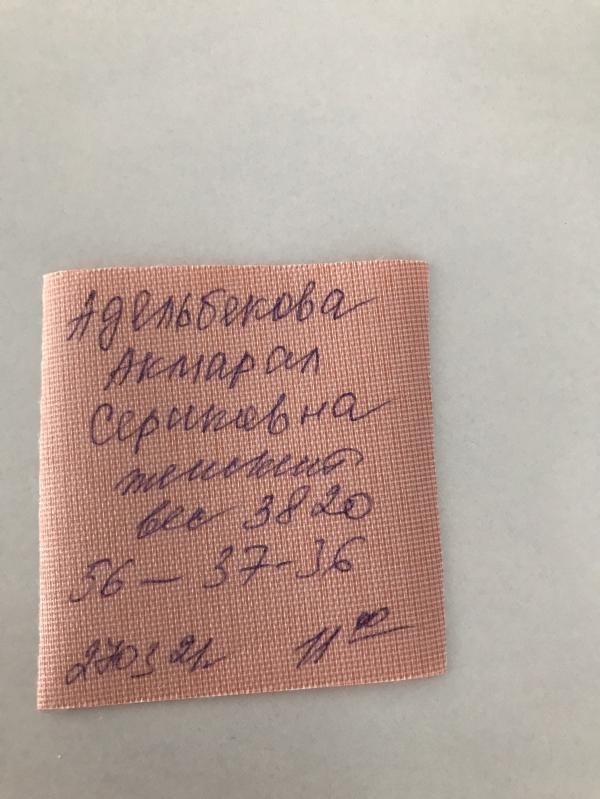 Адельбекова
Акмарал
Сериковна
женский
вес 3820
56 – 37-36
270321г 11⁰⁰